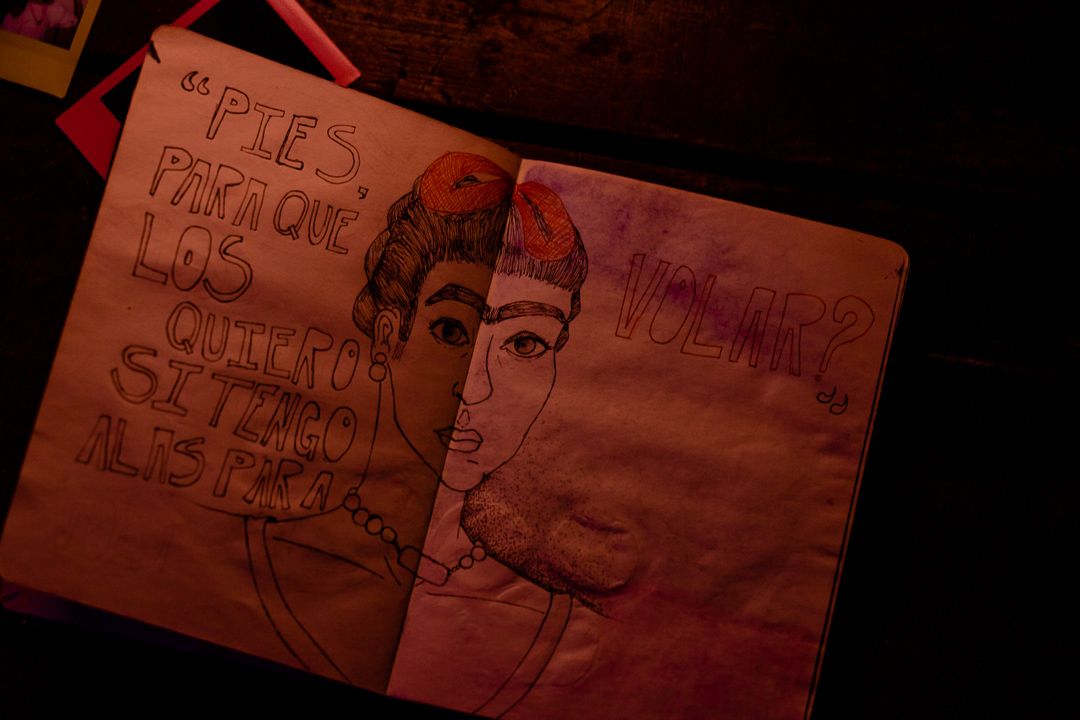 “PIES,
PARA QUE
LOS
QUIERO
SI TENGO
ALAS PARA
VOLAR?”